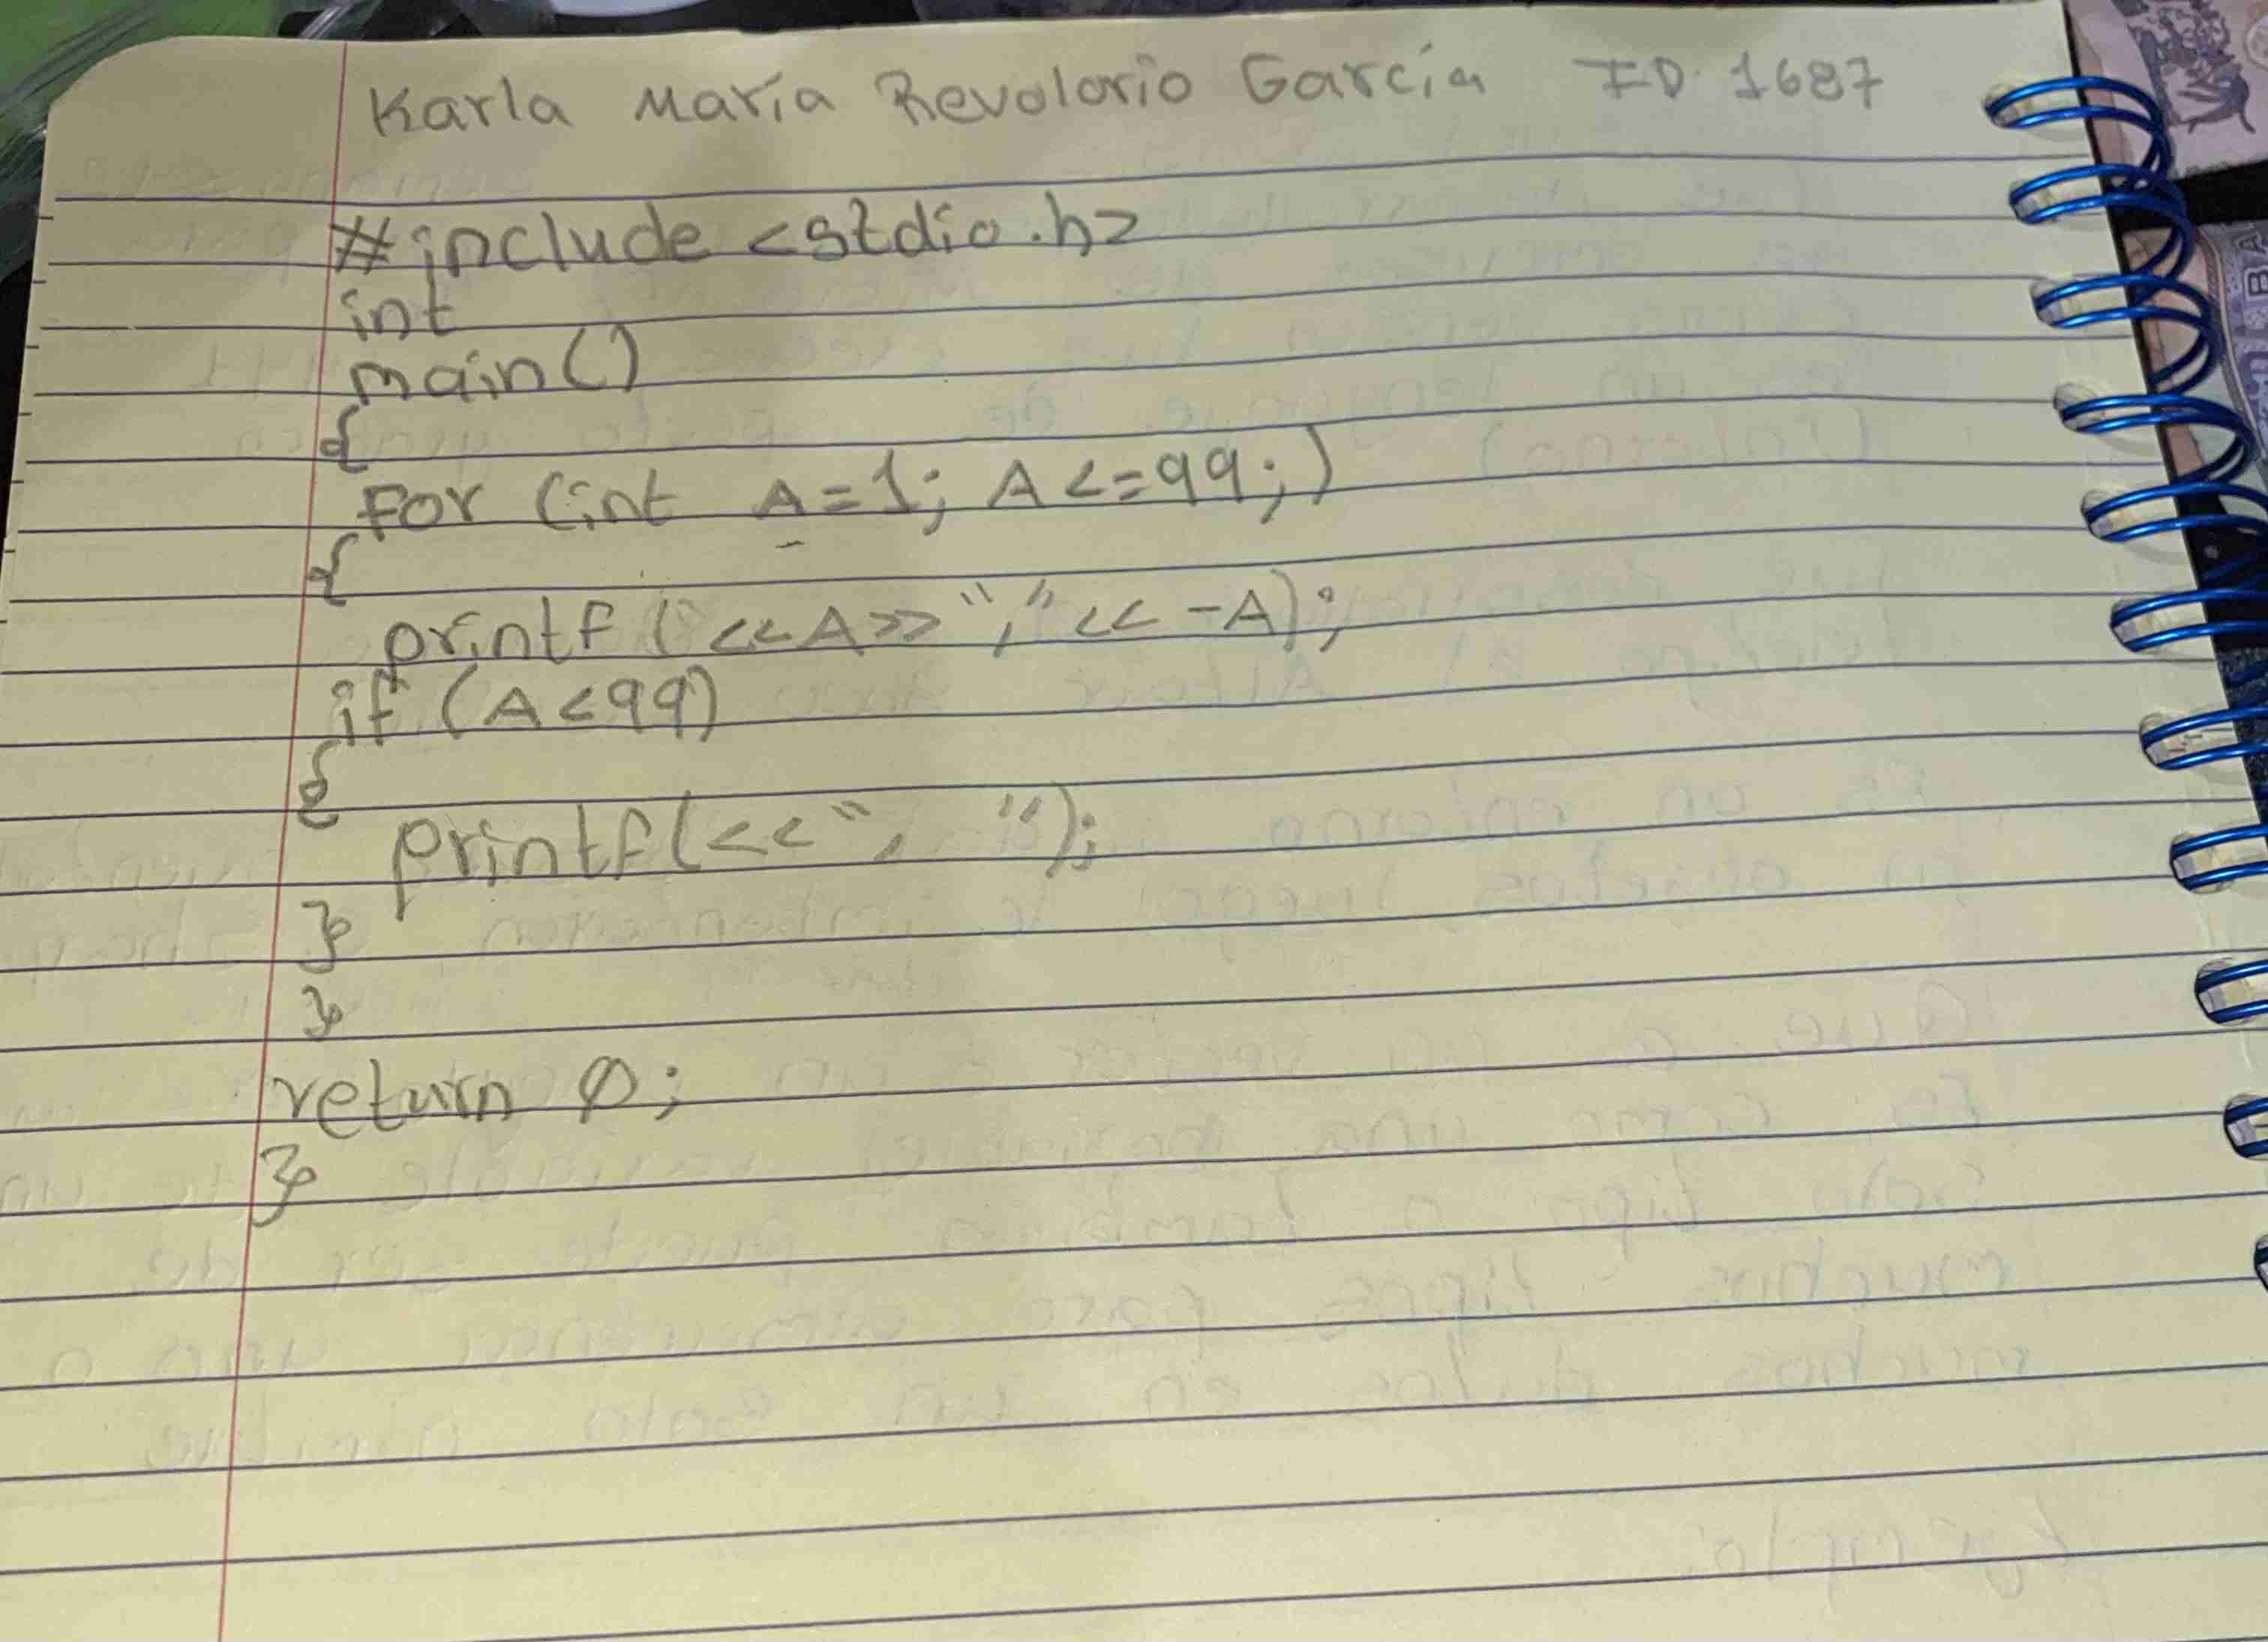 Karla María Revolorio García ID. 1687
#include <stdio.h>
int
main()
{
For (int A=1; A<=99;)
{
printf (<<A>>“,”<< -A);
if (A<99)
{
printf(<<“, ”);
}
}
return 0;
}